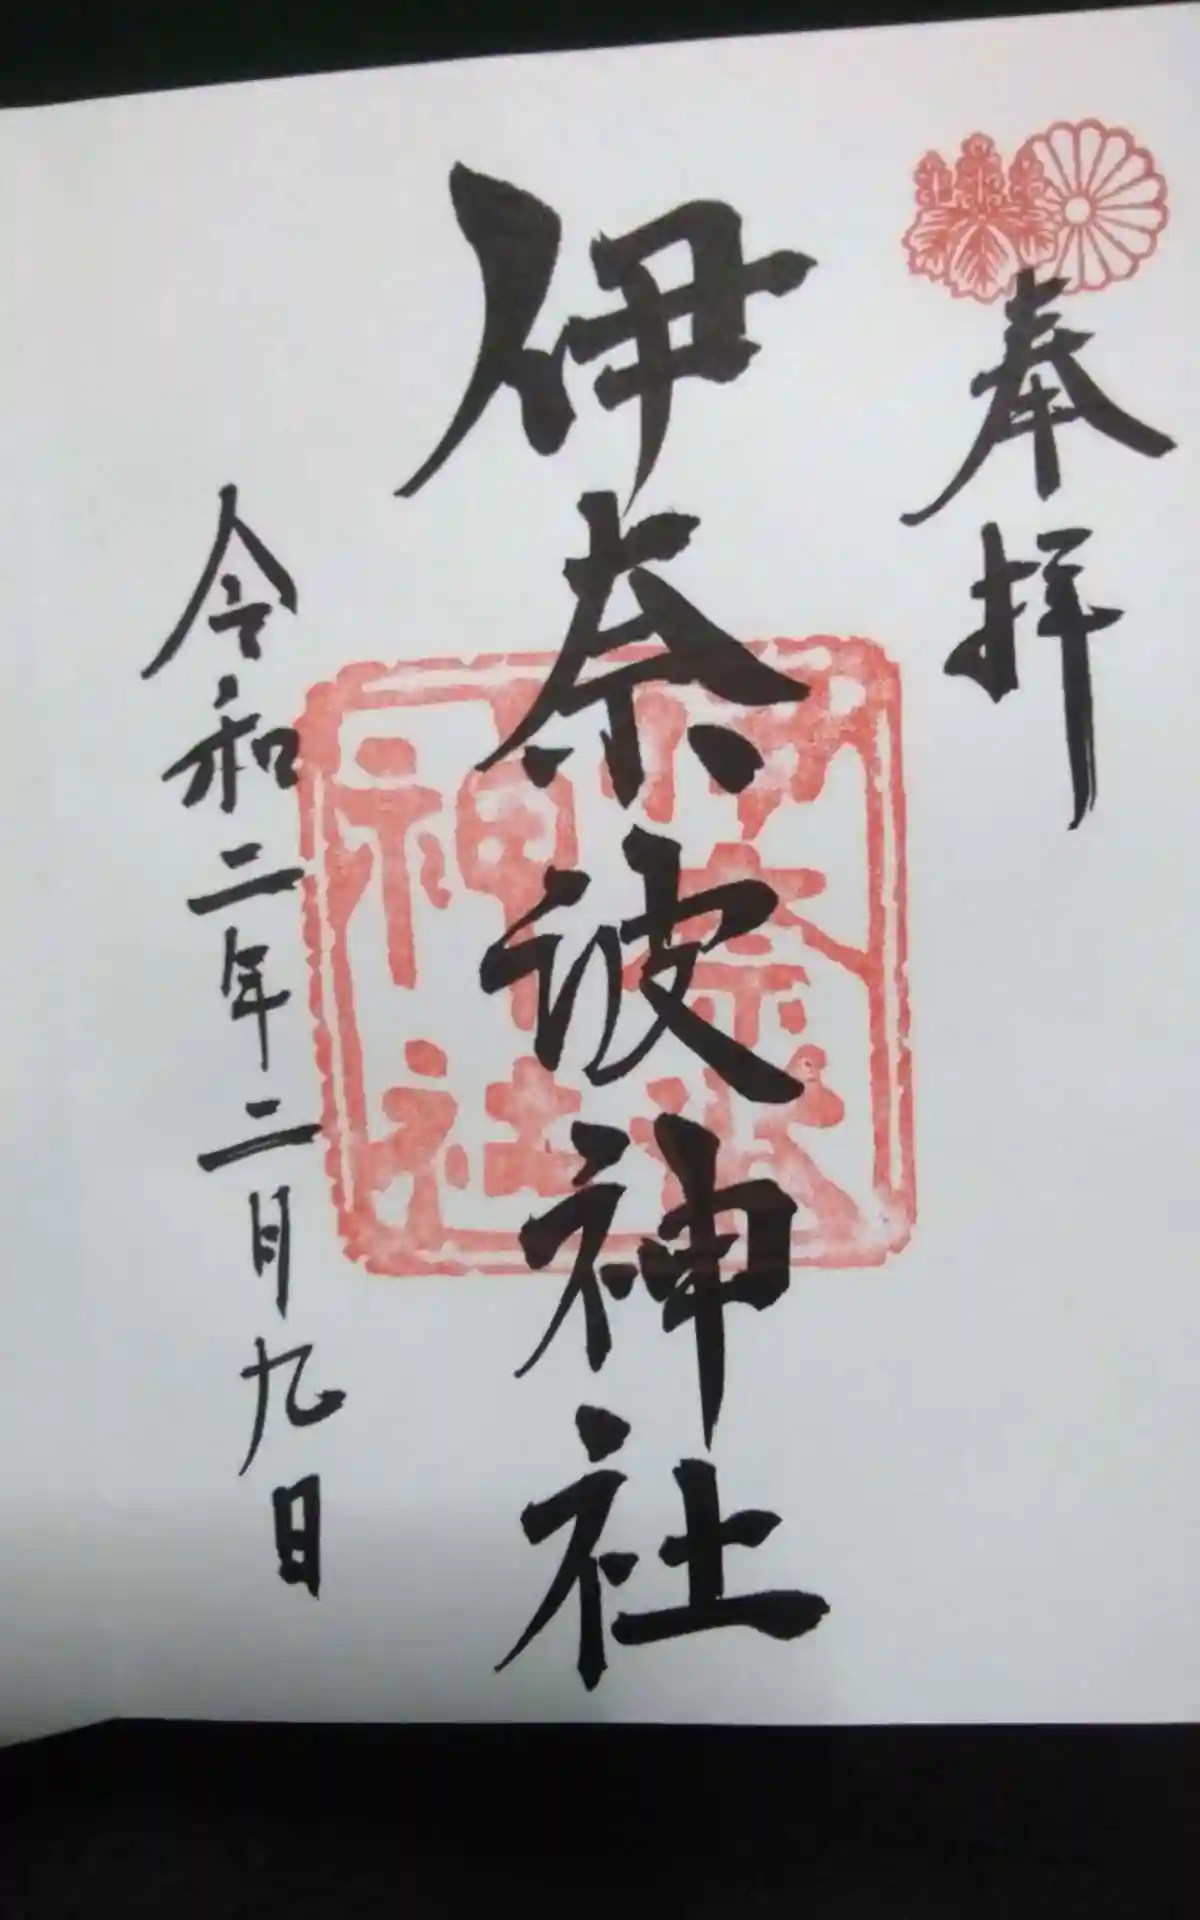 奉拝
伊奈波神社
伊奈波
神社
令和二年二月九日